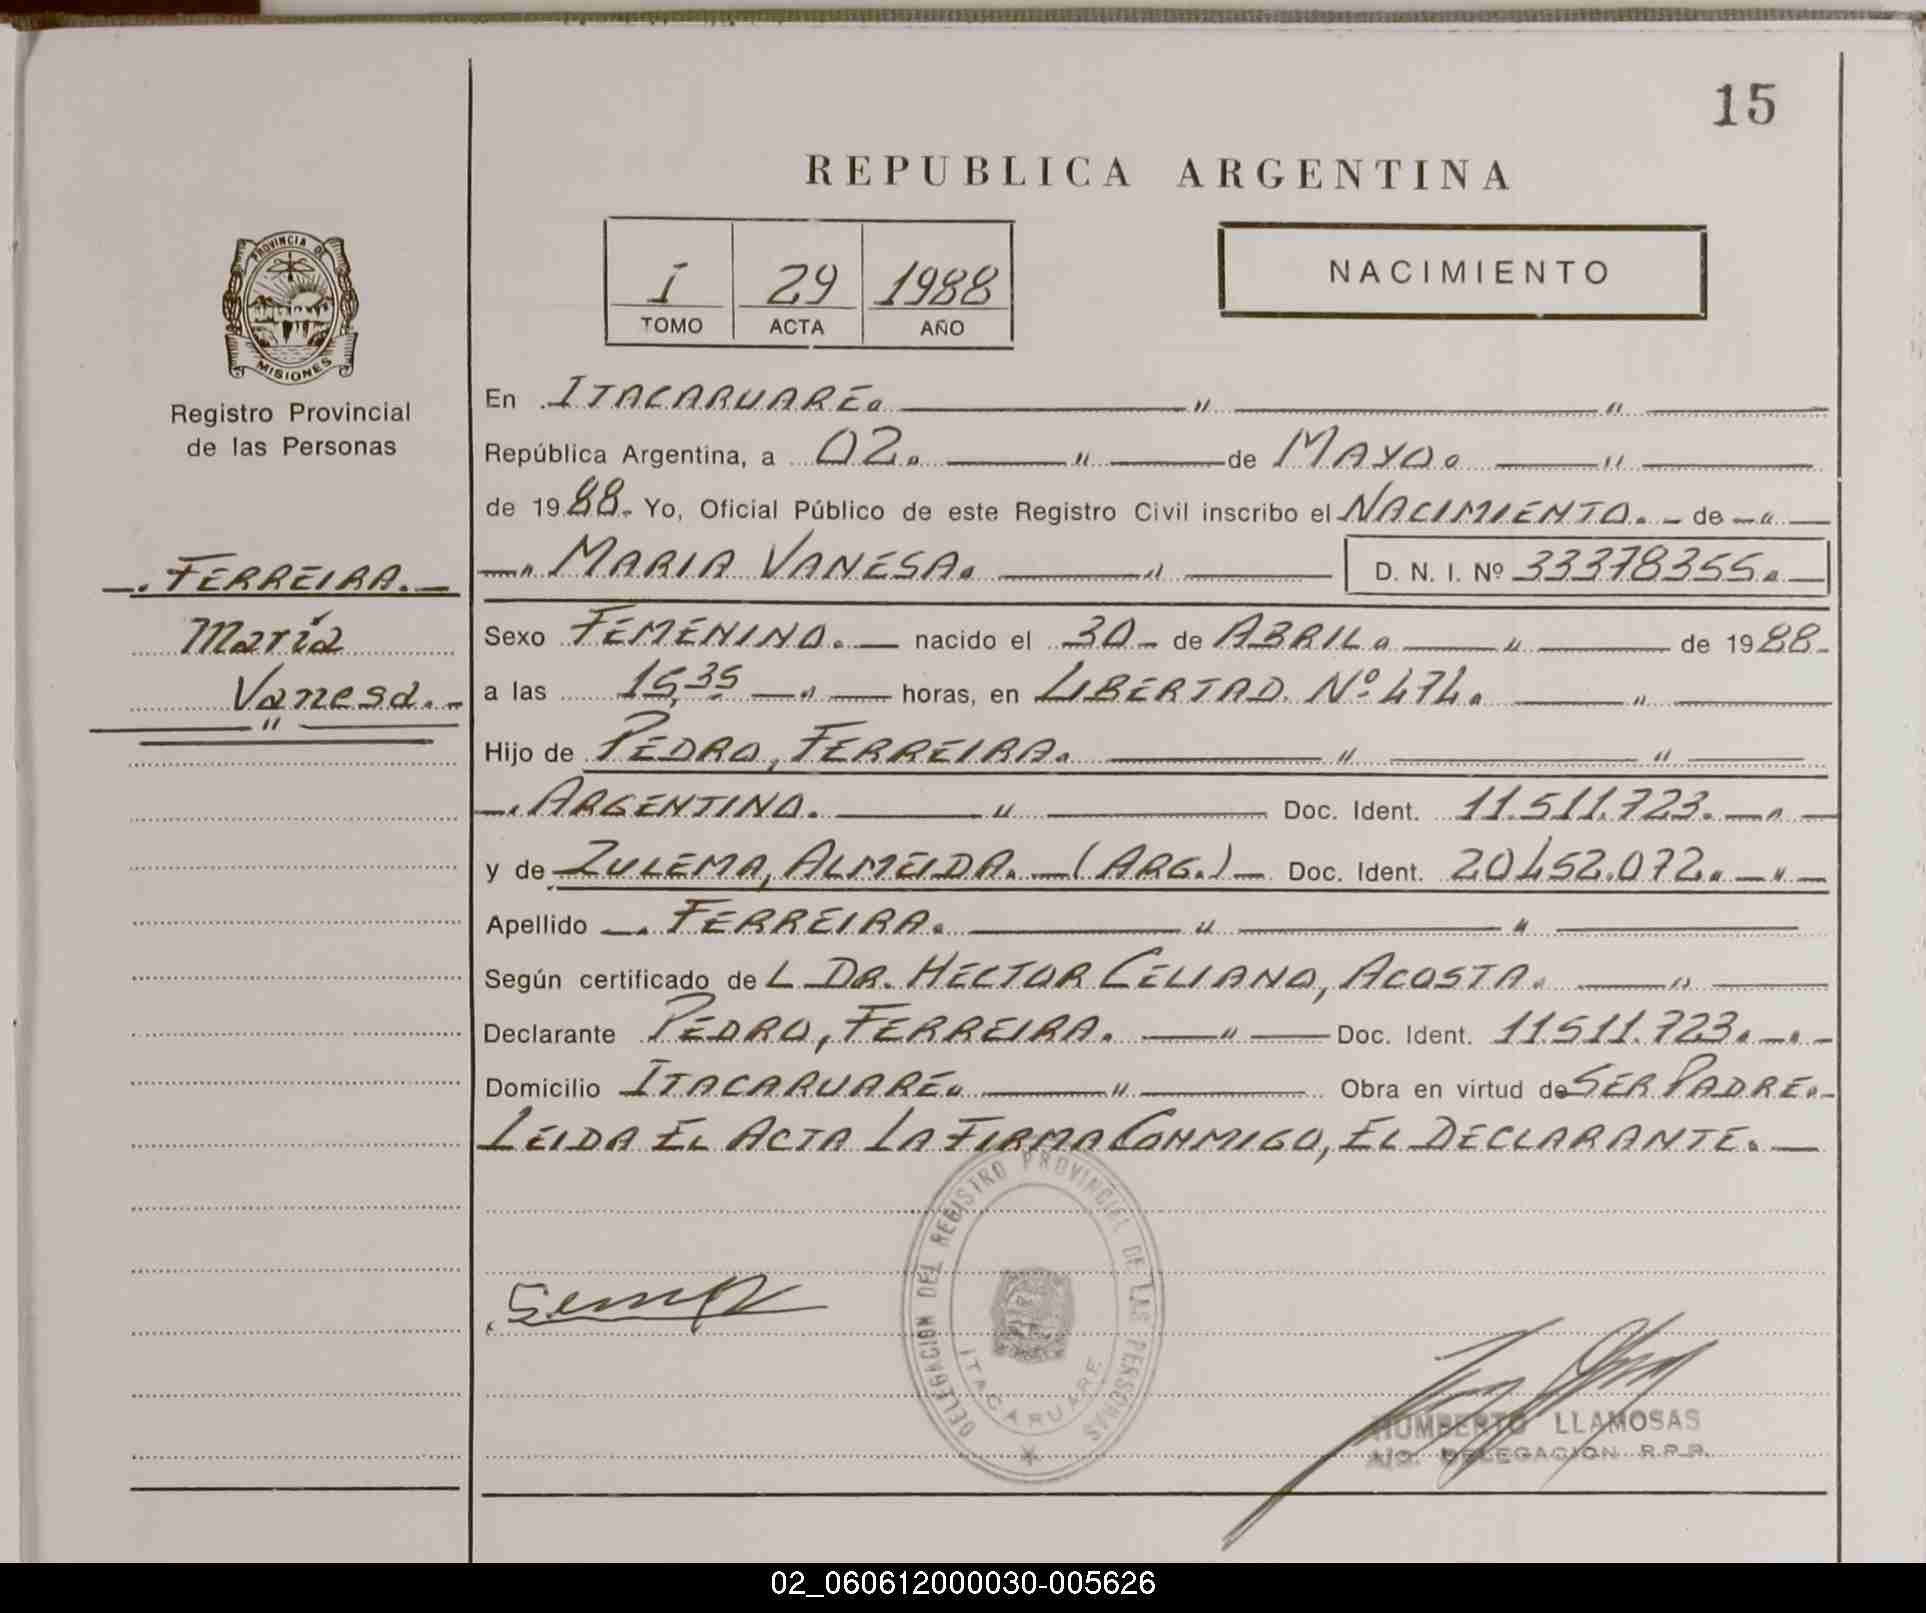 15
REPUBLICA ARGENTINA
I 29 1988
TOMO ACTA AÑO
NACIMIENTO
PROVINCIA DE MISIONES
Registro Provincial
de las Personas
FERREIRA.
María
Vanesa.
En ITACARUARE.
República Argentina, a 02. de MAYO.
de 1988. Yo, Oficial Público de este Registro Civil inscribo el NACIMIENTO. de
MARIA VANESA. D. N. I. Nº 33378355.
Sexo FEMENINO. nacido el 30 de ABRIL. de 1988.
a las 15,35 horas, en LIBERTAD. Nº 474.
Hijo de PEDRO, FERREIRA.
ARGENTINO. Doc. Ident. 11.511.723.
y de ZULEMA, ALMEIDA. (ARG.) Doc. Ident. 20.452.072.
Apellido FERREIRA.
Según certificado de L DR. HECTOR CELIANO, ACOSTA.
Declarante PEDRO, FERREIRA. Doc. Ident. 11.511.723.
Domicilio ITACARUARE. Obra en virtud de SER PADRE.
LEIDA EL ACTA LA FIRMA CONMIGO, EL DECLARANTE.
DELEGACION DEL REGISTRO PROVINCIAL DE LAS PERSONAS
ITACARUARE
HUMBERTO LLAMOSAS
A/C. DELEGACION R.P.P.
02_060612000030-005626